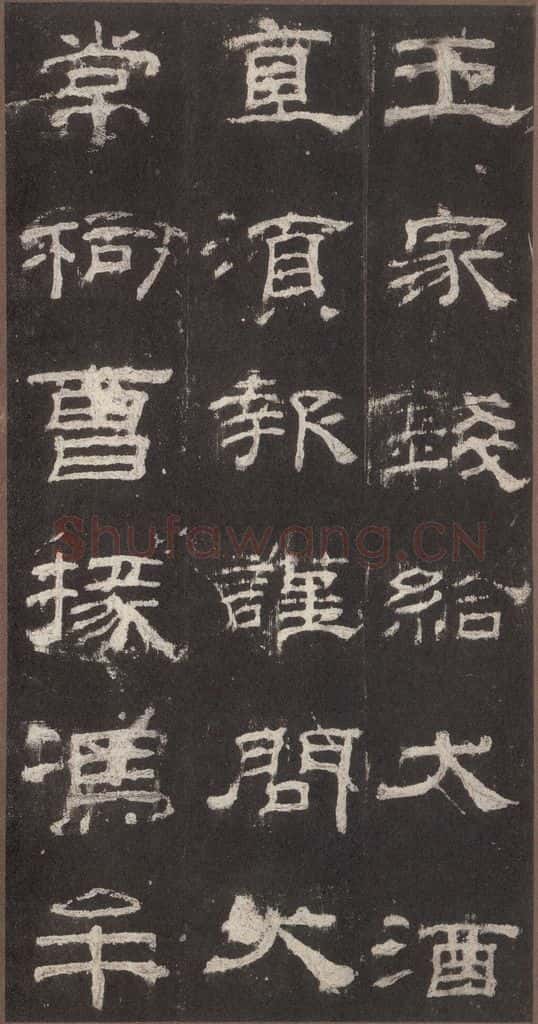 王家錢給犬酒
直須報謹問大
常祠曹掾馮牟
Shufawang.CN